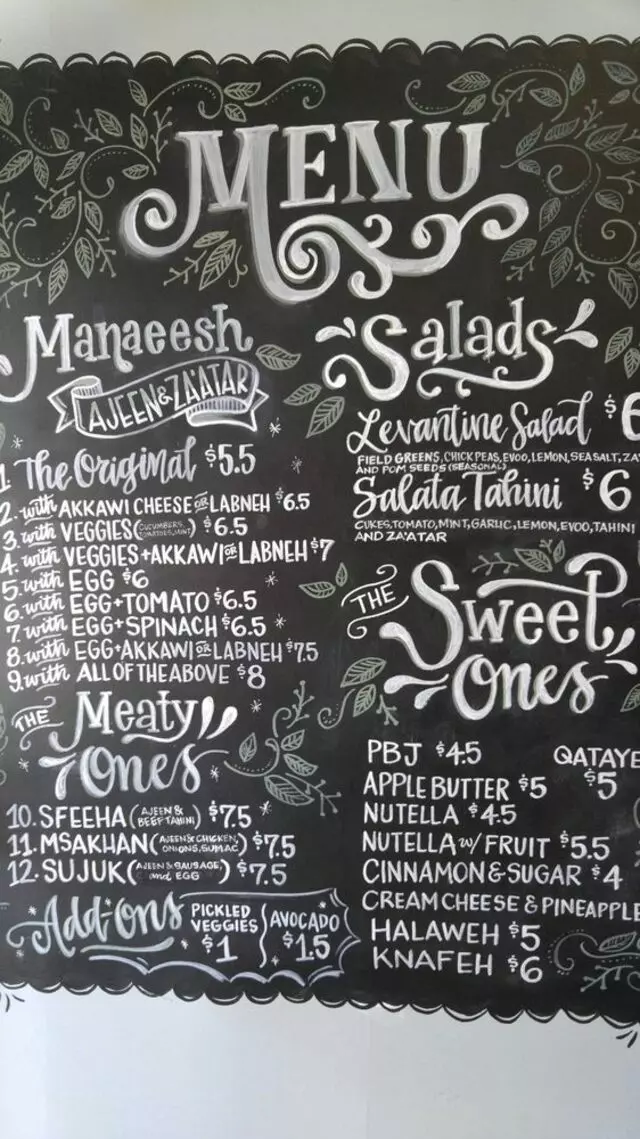 MENU
Manaeesh
AJEEN & ZA'ATAR
1. The Original $5.5
2. with AKKAWI CHEESE or LABNEH $6.5
3. with VEGGIES (CUCUMBERS, TOMATOES, MINT) $6.5
4. with VEGGIES + AKKAWI or LABNEH $7
5. with EGG $6
6. with EGG + TOMATO $6.5
7. with EGG + SPINACH $6.5
8. with EGG + AKKAWI or LABNEH $7.5
9. with ALL OF THE ABOVE $8
THE Meaty Ones
10. SFEEHA (AJEEN & BEEF TAHINI) $7.5
11. MSAKHAN (AJEEN & CHICKEN, ONIONS, SUMAC) $7.5
12. SUJUK (AJEEN & SAUSAGE, and EGG) $7.5
Add-Ons
PICKLED VEGGIES $1
AVOCADO $1.5
Salads
Levantine Salad $6
FIELD GREENS, CHICK PEAS, EVOO, LEMON, SEA SALT, ZA
AND POM SEEDS (SEASONAL)
Salata Tahini $6
CUKES, TOMATO, MINT, GARLIC, LEMON, EVOO, TAHINI
AND ZA'ATAR
THE Sweet
Ones
PBJ $4.5
QATAYE
$5
APPLE BUTTER $5
NUTELLA $4.5
NUTELLA w/ FRUIT $5.5
CINNAMON & SUGAR $4
CREAM CHEESE & PINEAPPLE
HALAWEH $5
KNAFEH $6